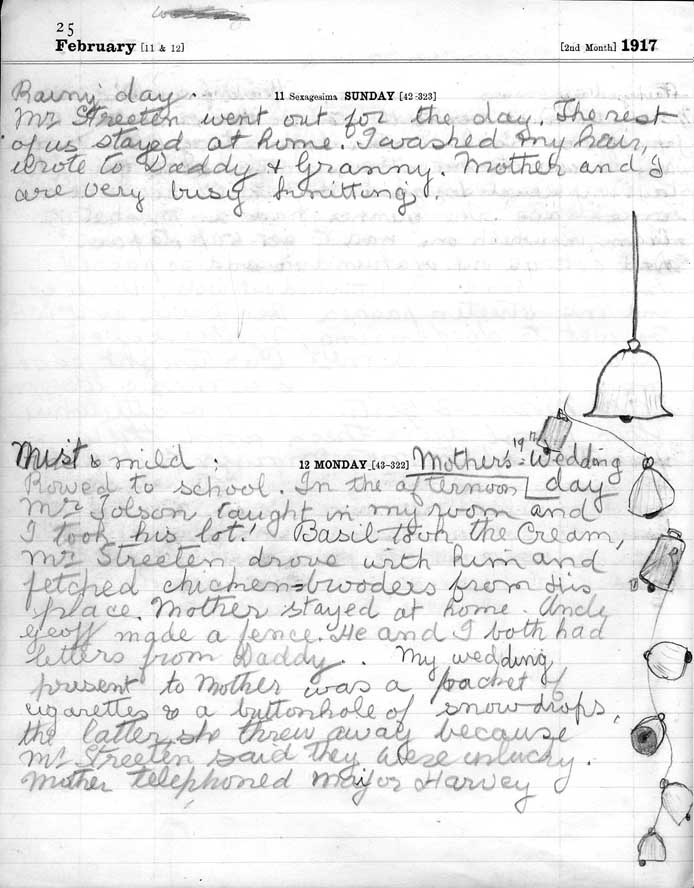 25
February [11 & 12] [2nd Month] 1917
Rainy day. 11 Sexagesima SUNDAY [42-323]
Mr Streeten went out for the day. The rest
of us stayed at home. I washed my hair,
wrote to Daddy & Granny. Mother and I
are very busy knitting.
Mist & mild : 12 MONDAY [43-322] Mother's 19th Wedding
Rowed to school. In the afternoon day
Mr Tolson taught in my room and
I took his lot! Basil took the Cream,
Mr Streeten drove with him and
fetched chicken=brooders from his
place. Mother stayed at home. Uncle
Geoff made a fence. He and I both had
letters from Daddy.. My wedding
present to Mother was a packet of
cigarettes & a buttonhole of snowdrops,
the latter she threw away because
Mr Streeten said they were unlucky.
Mother telephoned Major Harvey